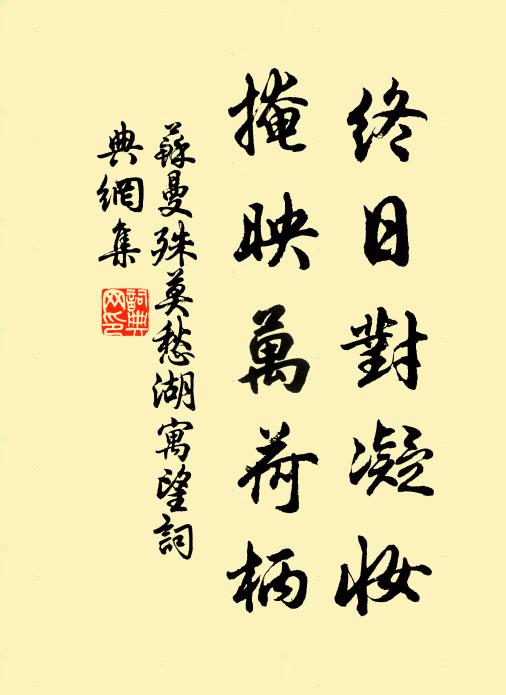 終日對凝妝
掩映萬荷柄
蘇曼殊莫愁湖寓望詞
典網集
詞典網印